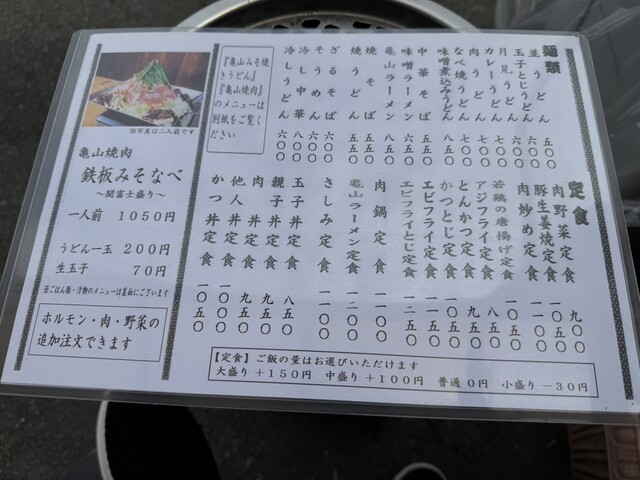 麺類
並うどん 五〇〇
玉子とじうどん 六〇〇
月見うどん 六〇〇
カレーうどん 七〇〇
肉うどん 七〇〇
なべ焼うどん 七〇〇
味噌煮込みうどん 八五〇
中華そば 五五〇
味噌ラーメン 六〇〇
亀山ラーメン 八五〇
焼そば 五五〇
焼うどん 五五〇
ざるそば 六〇〇
そうめん 六〇〇
冷し中華 八〇〇
冷しうどん 六〇〇
『亀山みそ焼
きうどん』
『亀山焼肉』
のメニューは
別紙をご覧く
ださい
定食
肉野菜定食 九〇〇
豚生姜焼定食 一〇五〇
肉炒め定食 一一〇〇
若鶏の唐揚げ定食 一〇五〇
アジフライ定食 九五〇
とんかつ定食 八五〇
かつとじ定食 一〇五〇
エビフライ定食 一一五〇
エビフライとじ定食 一二五〇
肉鍋定食 一一五〇
亀山ラーメン定食
さしみ定食 一一〇〇
玉子丼定食 八五〇
親子丼定食 九五〇
肉丼定食 九五〇
他人丼定食 一〇〇〇
かつ丼定食 一〇五〇
【定食】ご飯の量はお選びいただけます
大盛り+150円 中盛り+100円 普通0円 小盛り-30円
※写真は二人前です
亀山焼肉
鉄板みそなべ
～関富士盛り～
一人前 1050円
うどん一玉 200円
生玉子 70円
※ごはん類・汁物のメニューは裏面にございます
ホルモン・肉・野菜の
追加注文できます